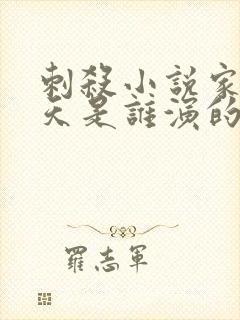 刺殺小説家
天是誰演的
羅志軍